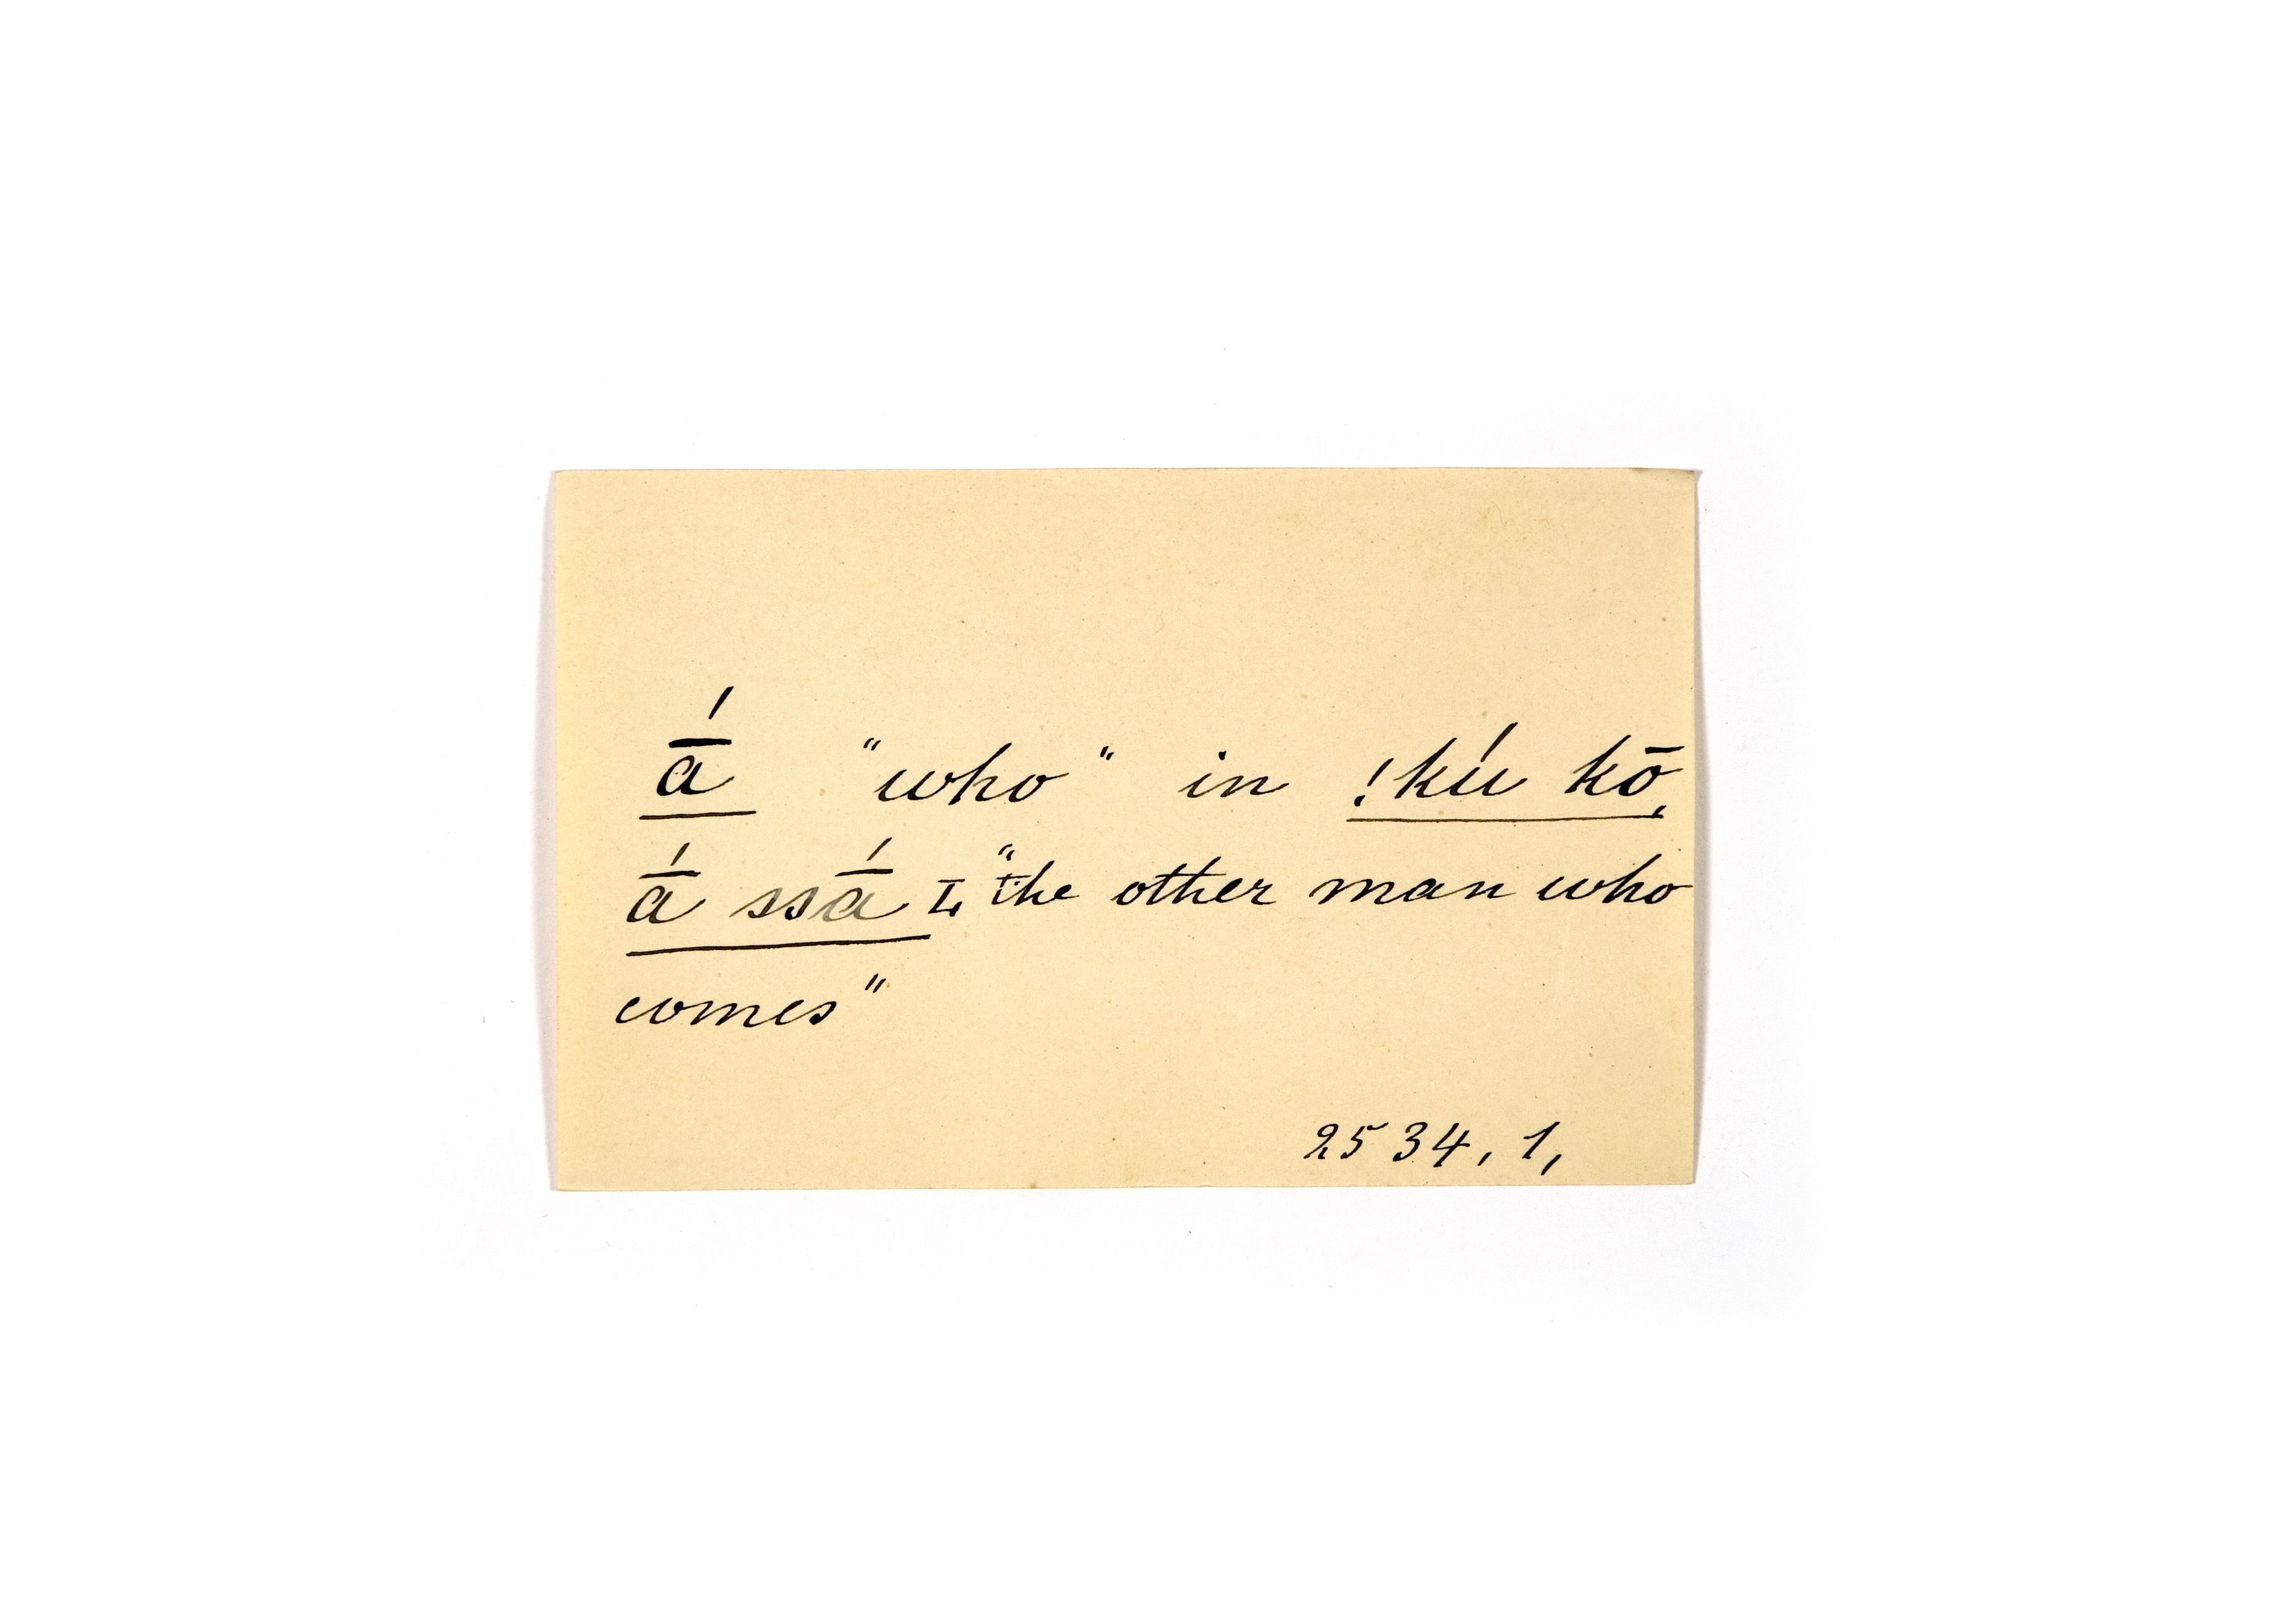 ā́ "who" in !kú kō,
ā́ ssā́ "the other man who
comes"
2534, 1,